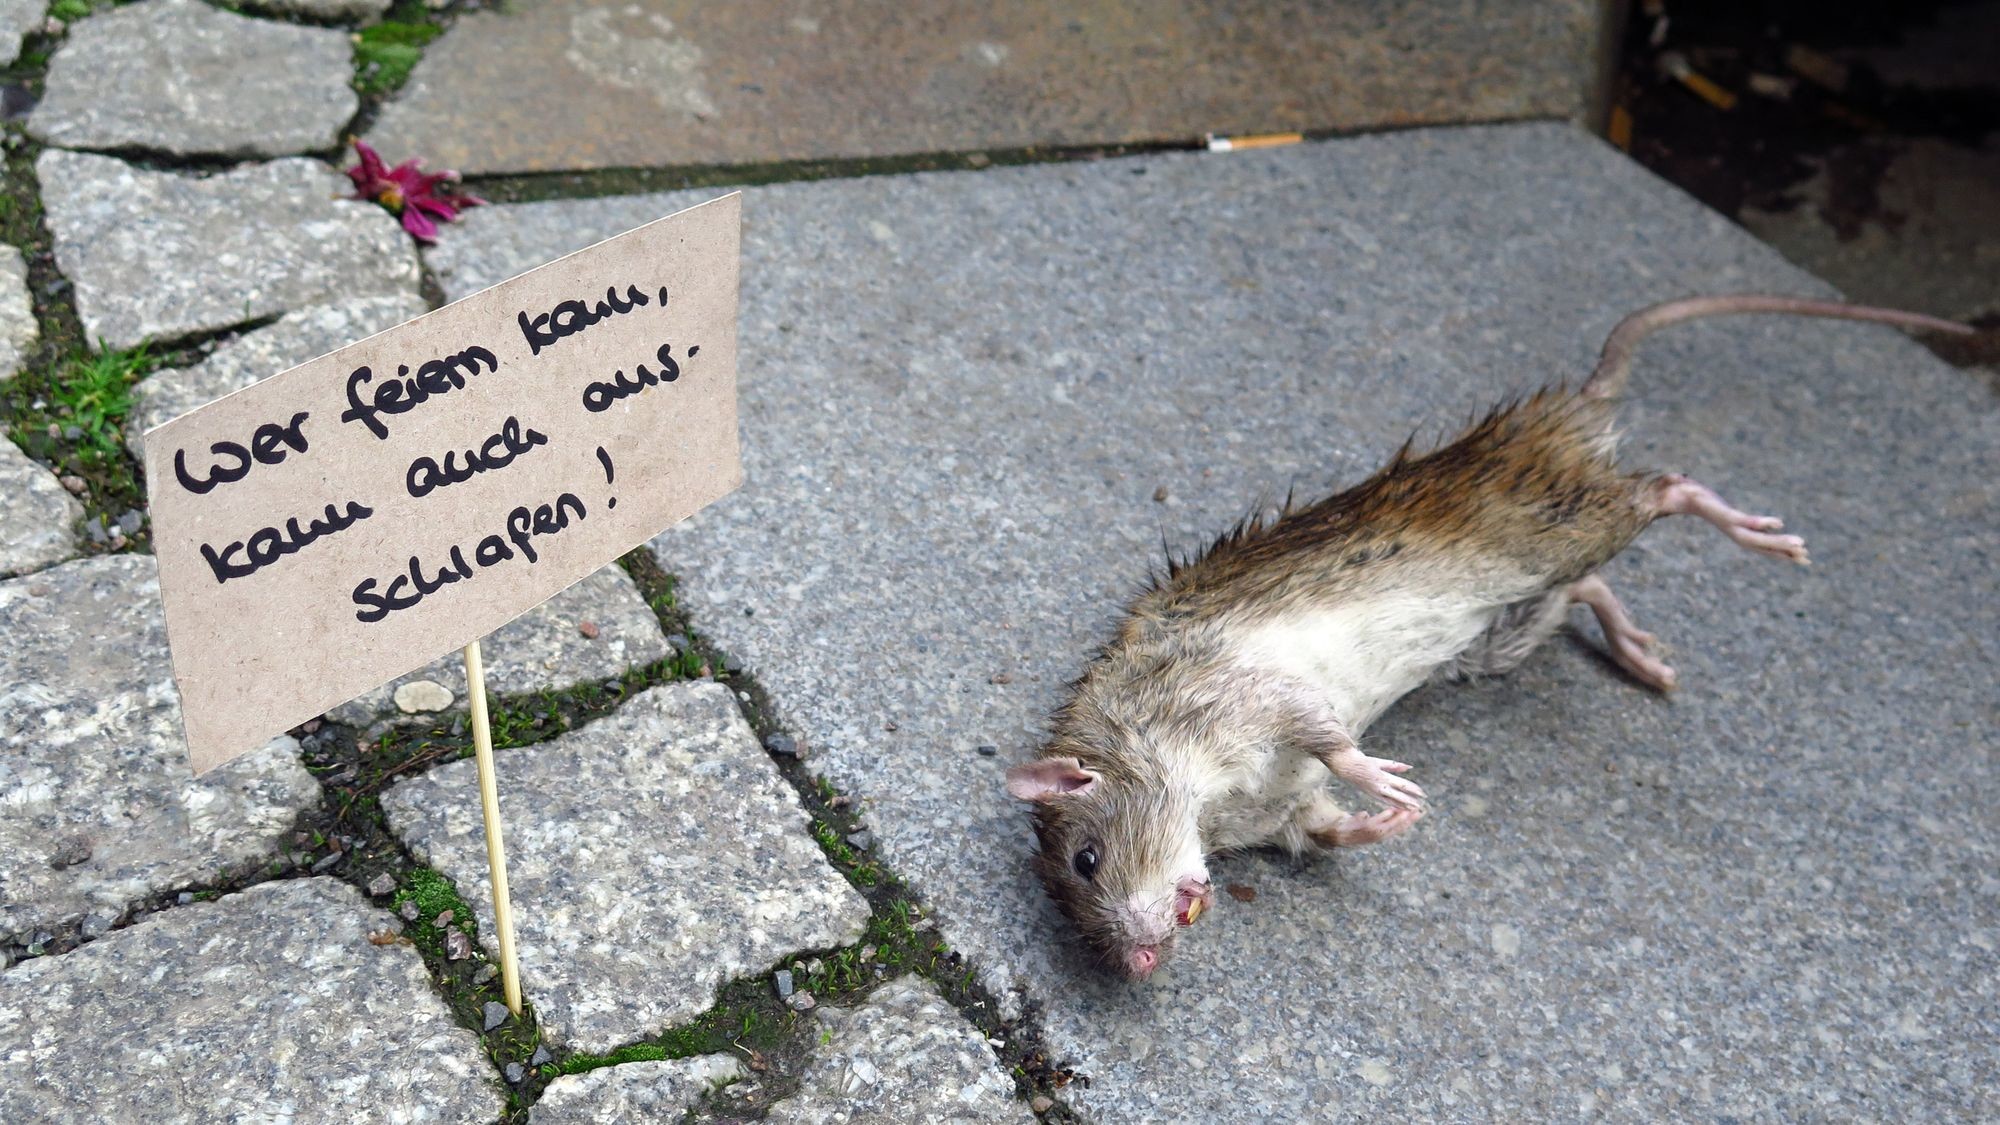 Wer feiern kann,
kann auch aus-
schlafen!